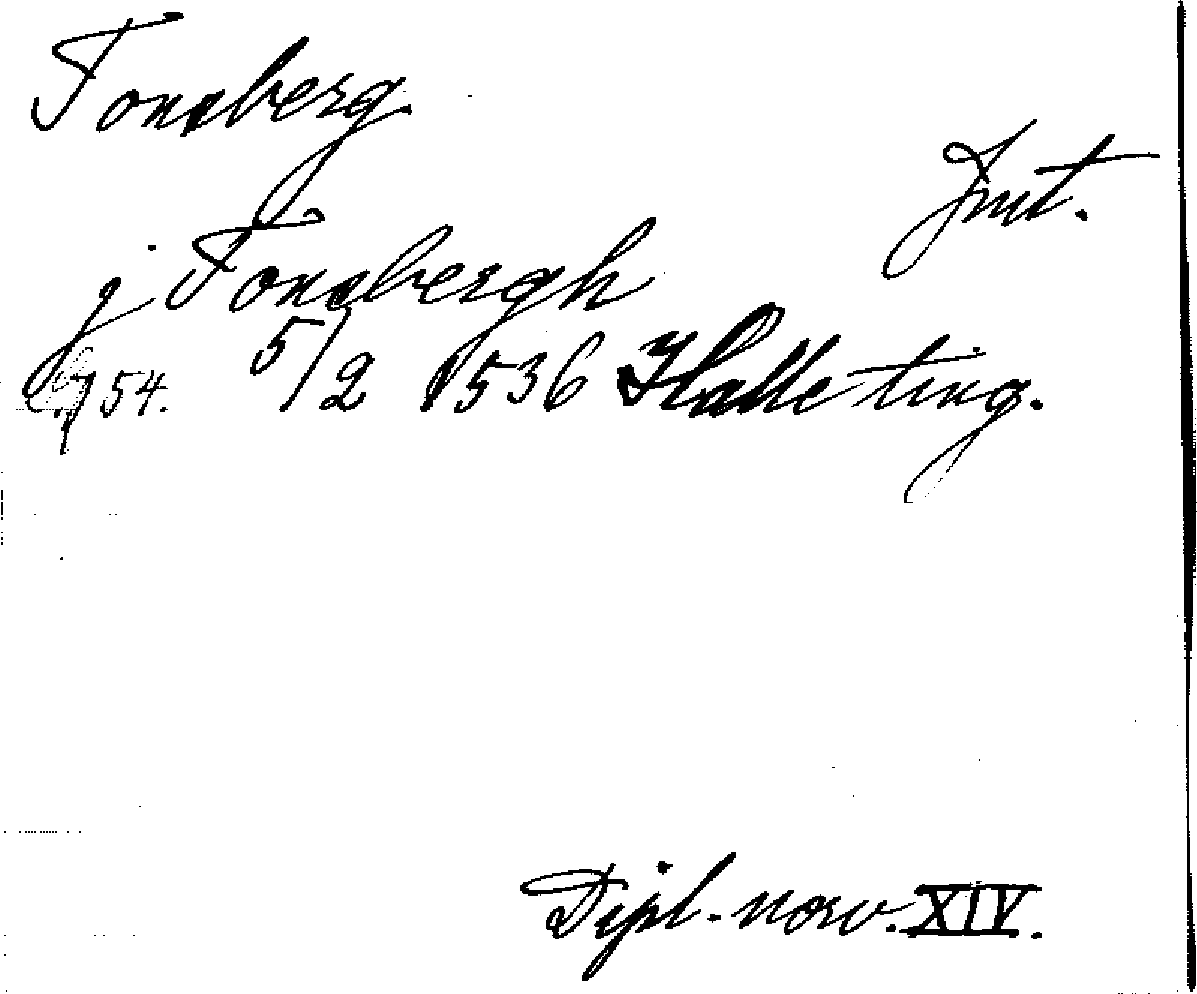 Tonsberg
Jmt.
j Tonsbergh
54. 5/2 1536 Halle ting.
Dipl. norv. XIV.